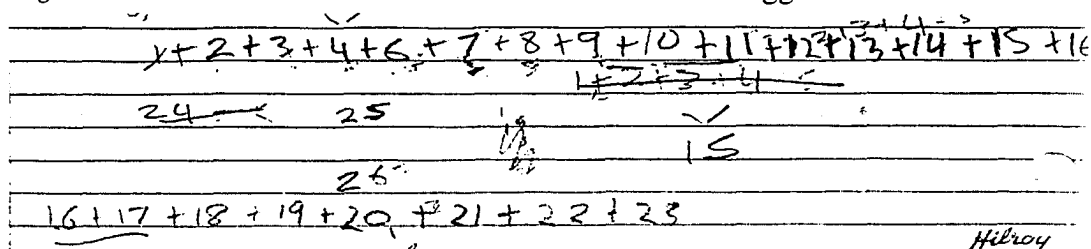 1+2+3+4+6+7+8+9+10+11+12+13+14+15+16
1+2+3+4
24 25
15
26
16+17+18+19+20+21+22+23
Hilroy